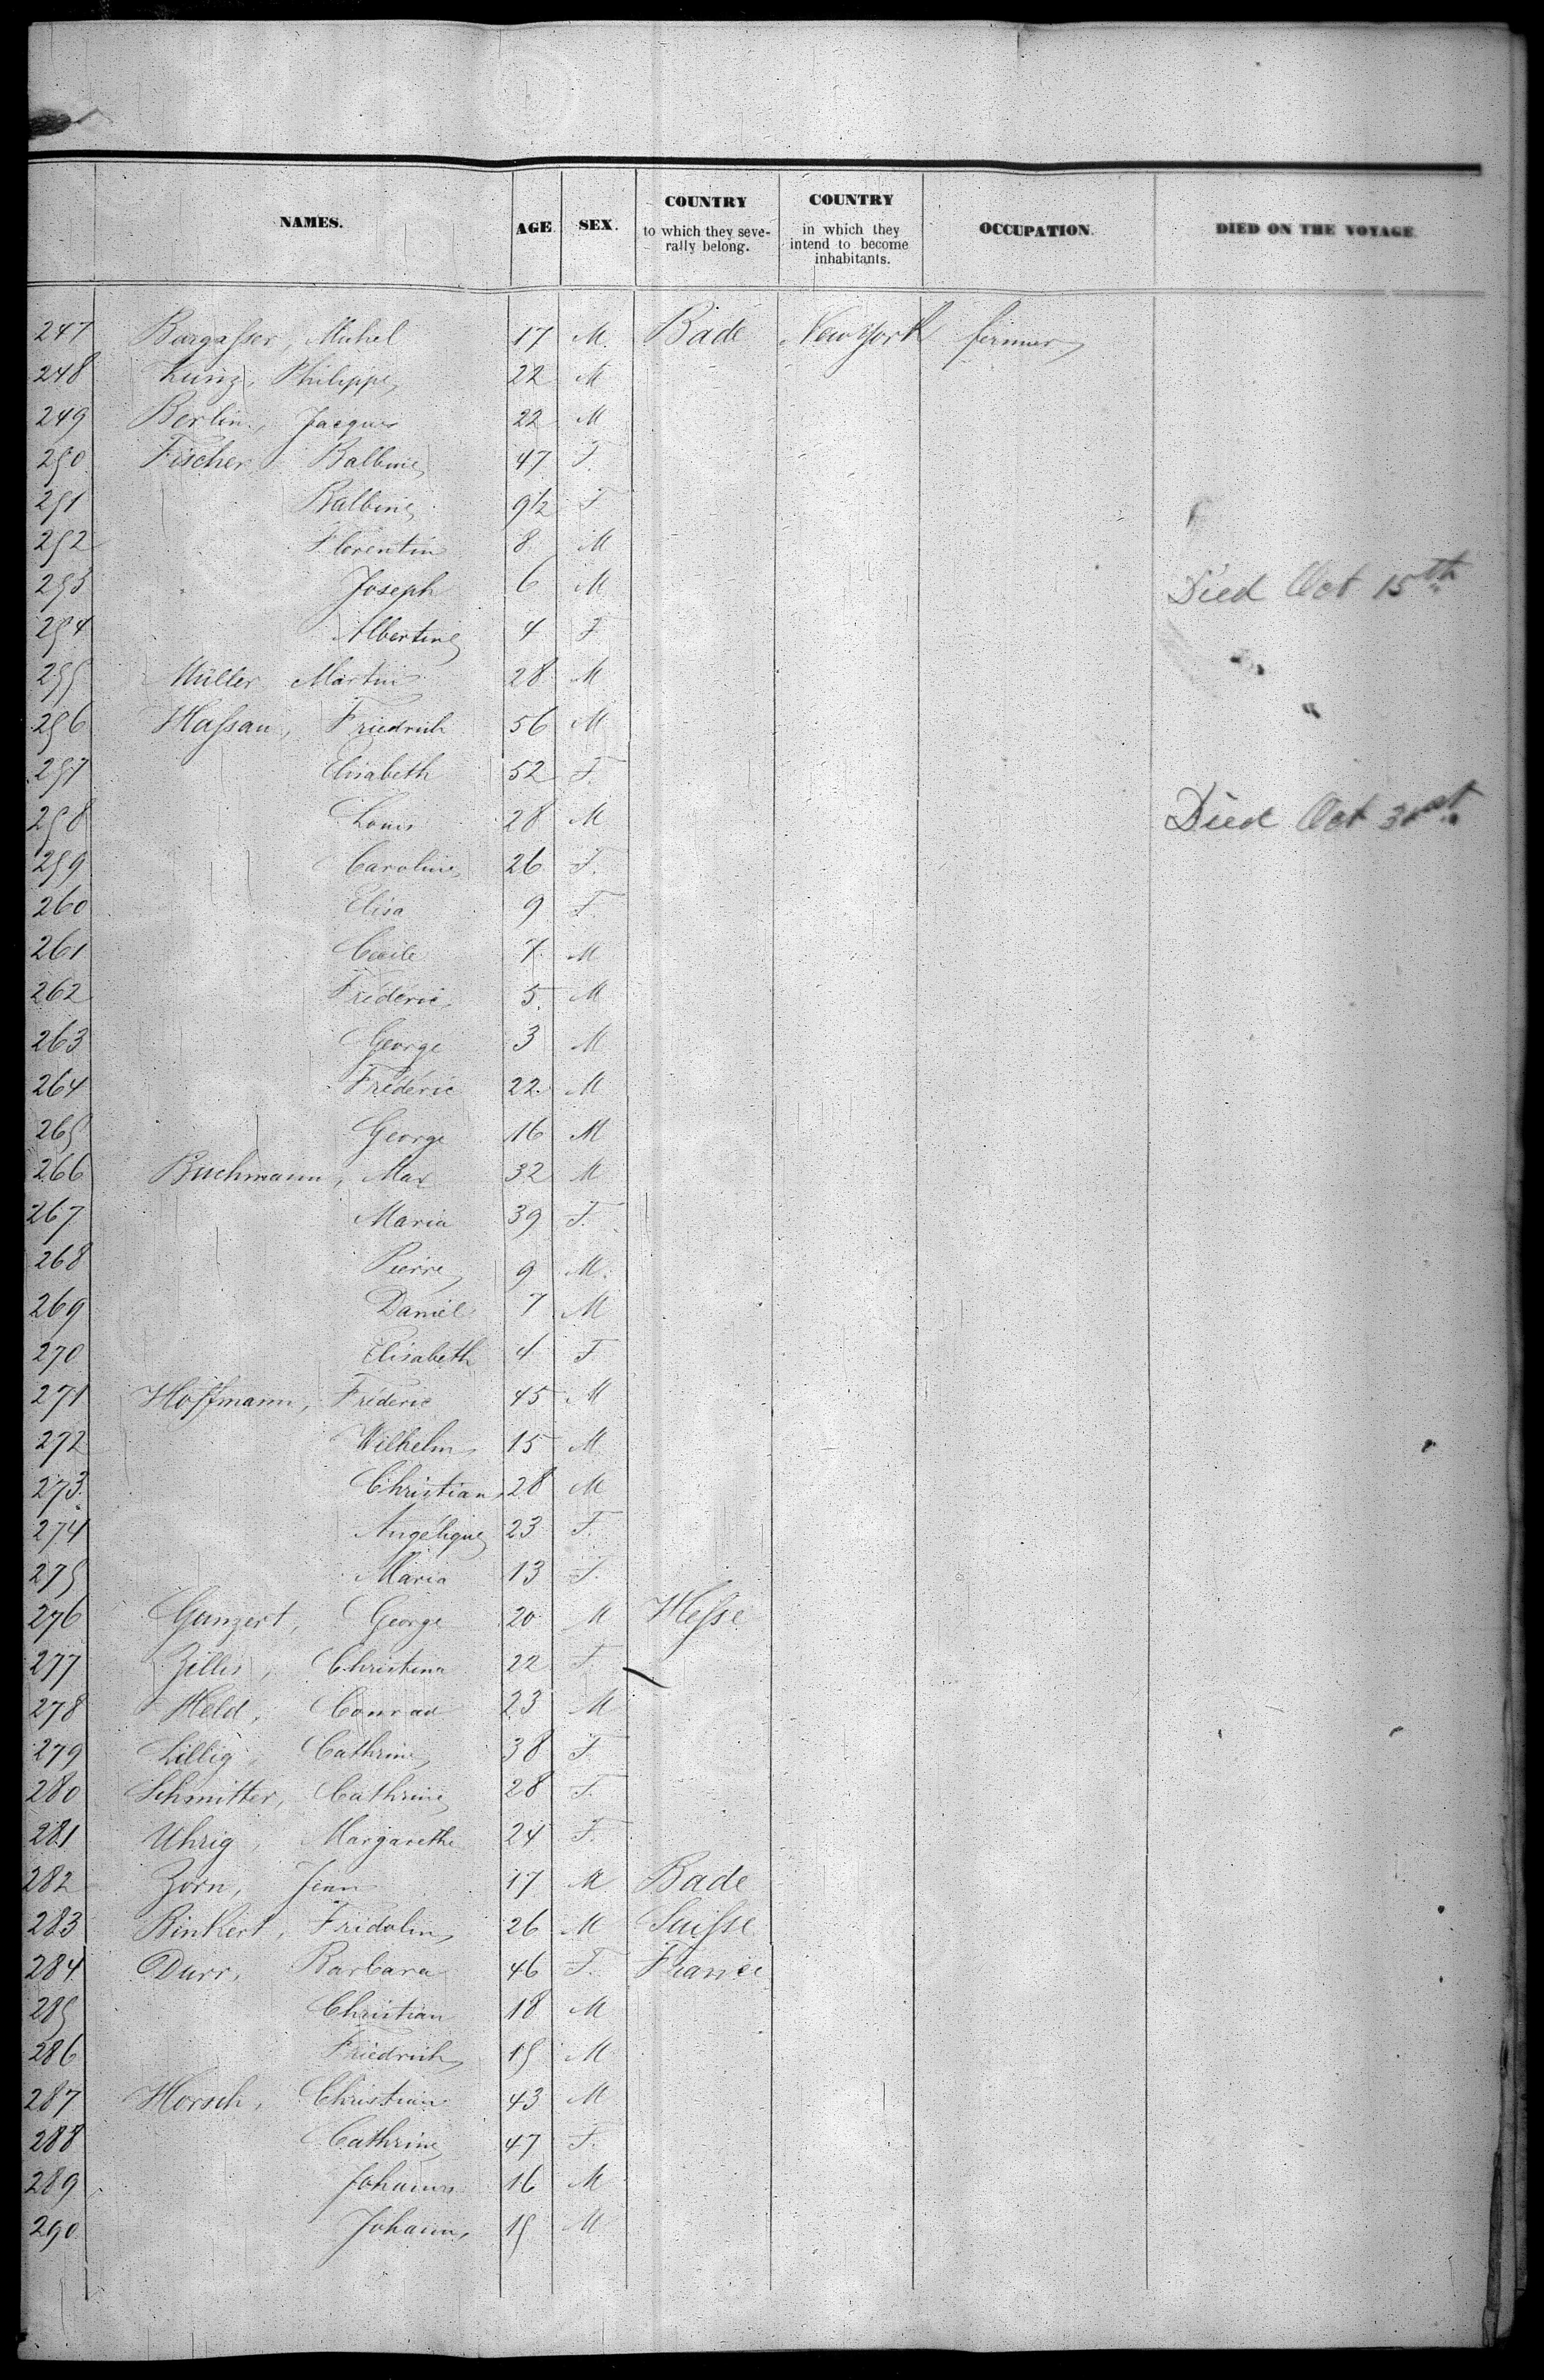 NAMES. AGE. SEX. COUNTRY to which they severally belong. COUNTRY in which they intend to become inhabitants. OCCUPATION. DIED ON THE VOYAGE
247 Bargasser, Michel 17 M. Bade New York fermer
248 Kunz, Philippe 22 M
249 Berlin, Jacques 22 M
250 Fischer, Balbine 47 F.
251 Balbine 9 1/2 F
252 Florentin 8 M
253 Joseph 6 M Died Oct 15th
254 Albertine 4 F
255 Müller Martin 28 M
256 Hassau, Friedrich 56 M "
257 Elisabeth 52 F.
258 Louis 28 M Died Oct 31st
259 Caroline 26 F.
260 Elisa 9 F.
261 7. M
262 Fréderic 5. M
263 George 3 M
264 Fréderic 22. M
265 George 16 M
266 Buchmann, Max 32 M
267 Maria 39 F.
268 Pierre 9 M.
269 Daniel 7 M
270 Elisabeth 4 F
271 Hoffmann, Fréderic 45 M
272 Wilhelm 15 M
273. Christian 28 M
274 Angélique 23 F.
275 Maria 13 F.
276 Ganzert, George 20 M Hesse
277 Zillis, Christina 22 F
278 Held, Conrad 23 M
279 Lillig, Cathrine 38 F.
280 Schmitter, Cathrine 28 F.
281 Uhrig, Margarethe 24 F.
282 Zorn, Jean 17 M Bade
283 Binkert, Fridolin 26 M Suisse
284 Durr, Barbara 46 F. France
285 Christian 18 M
286 Friedrich 15 M
287 Horsch, Christian 43 M
288 Cathrine 47 F.
289 Johannes 16 M
290 Johann 15 M